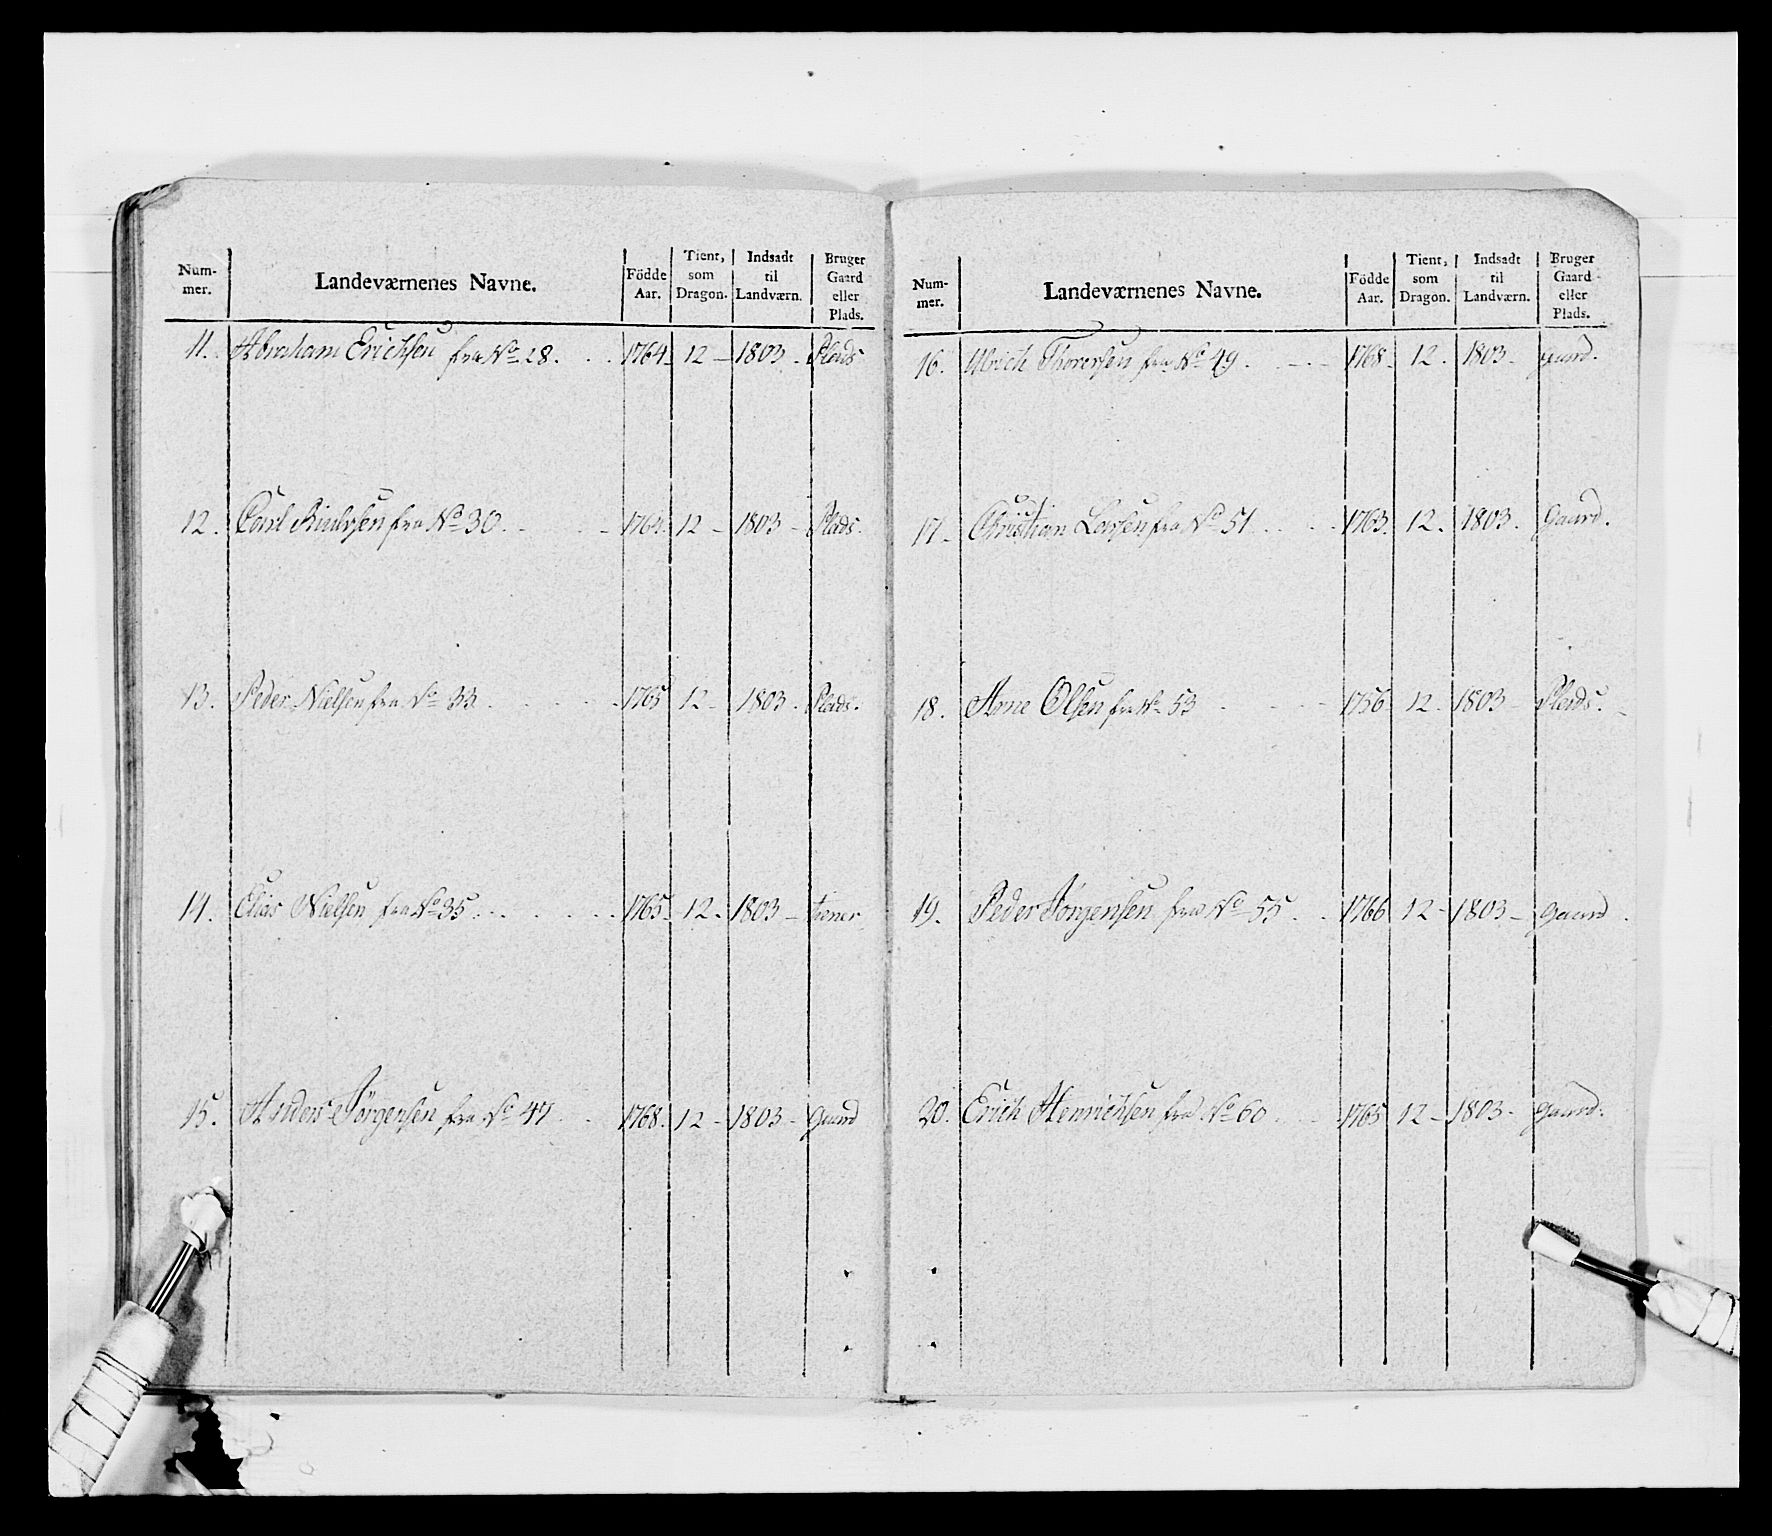 Num-
mer.
Landeværnenes Navne.
Födde
Aar.
Tient,
som
Dragon.
Indsadt
til
Landværn.
Bruger
Gaard
eller
Plads.
11. Abraham Erichsen fra No 28. . . 1764 12 – 1803 . Plads
12. Carl fra No 30 . - - - 1764. 12 – 1803 – Plads.
13. Peder Nielsen fra No 33 . . . . . 1765 12 – 1803 . Plads.
14. Elias Nielsen fra No 35 . . . . . . 1765. 12 . 1803 – tiener
15. Anders Jörgensen fra No 47 . . 1768. 12 – 1803 – Gaard
Num-
mer.
Landeværnenes Navne.
Födde
Aar.
Tient,
som
Dragon.
Indsadt
til
Landværn.
Bruger
Gaard
eller
Plads.
16. Ulrich Thorersen fra No 49 . . – . – 1768. 12 . 1803 – Gaard.
17. Christian Larsen fra No 51 . . . . 1763. 12 . 1803 . Gaard.
18. Arne Olsen fra No 53 . . - - 1756 12 . 1803 – Plads.
19. Peder Jörgensen fra No 55 . . 1766 12 – 1803 – Gaard.
20. Erich Henrichsen fra No 60 . . – 1765 12 – 1803 – Gaard.